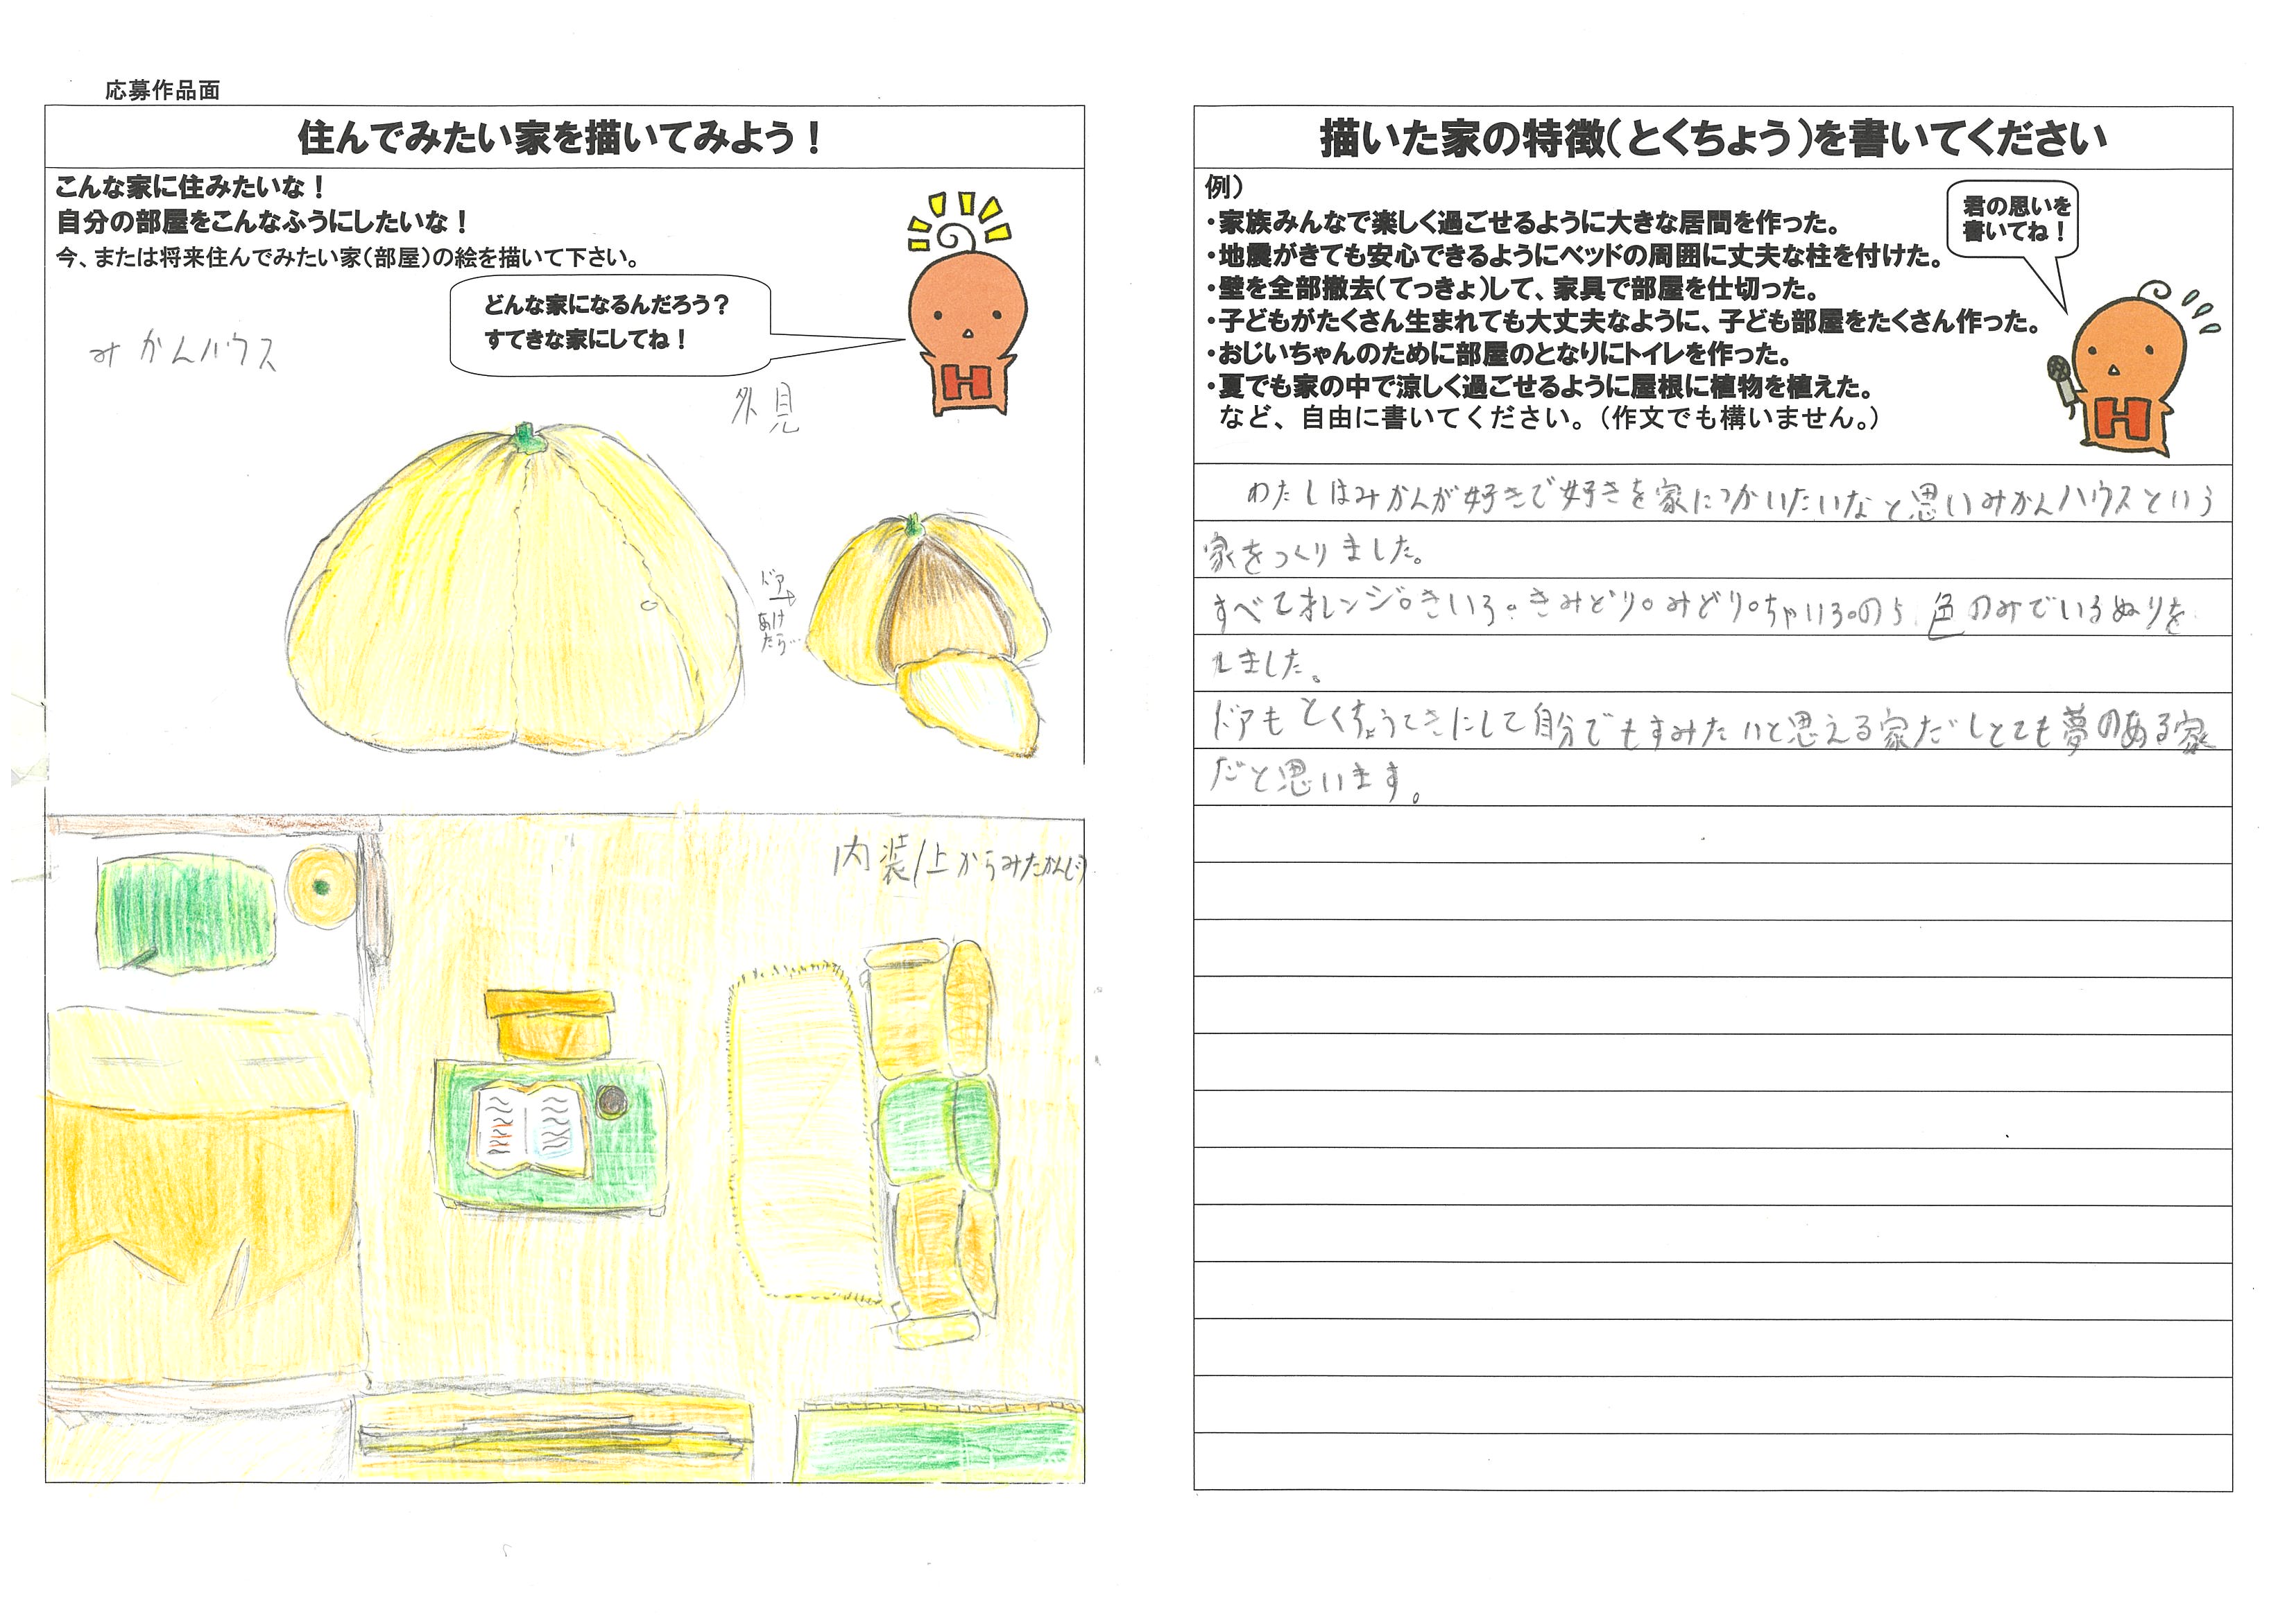 応募作品面
住んでみたい家を描いてみよう！
こんな家に住みたいな！
自分の部屋をこんなふうにしたいな！
今、または将来住んでみたい家（部屋）の絵を描いて下さい。
どんな家になるんだろう？
すてきな家にしてね！
H
みかんハウス
外見
ドア
あけ
たら…
内装/上からみたかんじ
描いた家の特徴（とくちょう）を書いてください
例）
・家族みんなで楽しく過ごせるように大きな居間を作った。
・地震がきても安心できるようにベッドの周囲に丈夫な柱を付けた。
・壁を全部撤去（てっきょ）して、家具で部屋を仕切った。
・子どもがたくさん生まれても大丈夫なように、子ども部屋をたくさん作った。
・おじいちゃんのために部屋のとなりにトイレを作った。
・夏でも家の中で涼しく過ごせるように屋根に植物を植えた。
など、自由に書いてください。（作文でも構いません。）
君の思いを
書いてね！
H
わたしはみかんが好きで好きを家につかいたいなと思いみかんハウスという
家をつくりました。
すべてオレンジ。きいろ。きみどり。みどり。ちゃいろ。の5色のみでいろぬりを
しました。
ドアもとくちょうてきにして自分でもすみたいと思える家だしとても夢のある家
だと思います。